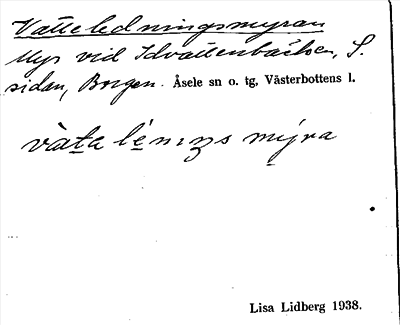 Vatteledningsmyran
Myr vid Idvattenbäcken, S.
sidan, Borgen. Åsele sn o. tg, Västerbottens l.
vàta lénıŋs mýra
Lisa Lidberg 1938.